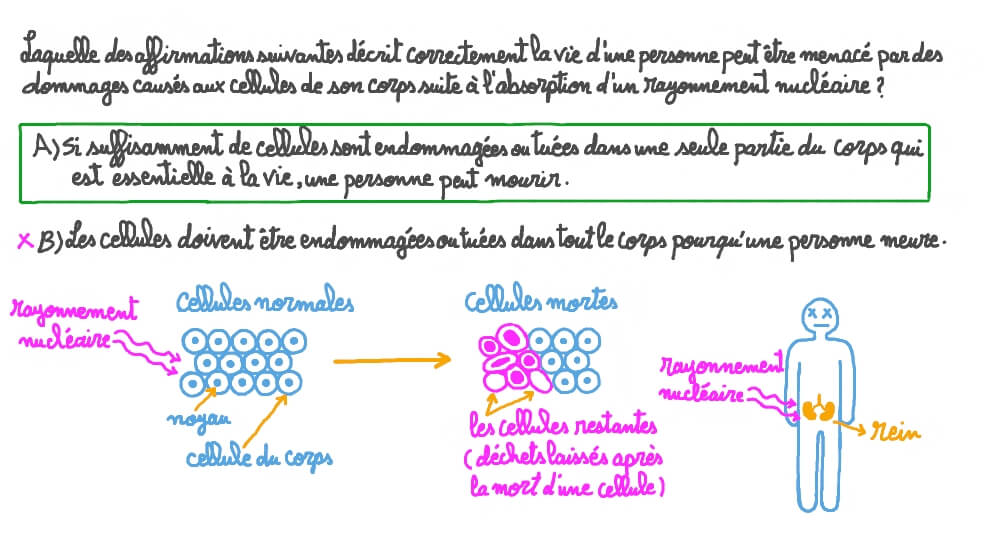 Laquelle des affirmations suivantes décrit correctement la vie d'une personne peut être menacé par des
dommages causés aux cellules de son corps suite à l'absorption d'un rayonnement nucléaire ?
A) Si suffisamment de cellules sont endommagées ou tuées dans une seule partie du corps qui
est essentielle à la vie, une personne peut mourir.
x B) Les cellules doivent être endommagées ou tuées dans tout le corps pour qu'une personne meure.
rayonnement
nucléaire
cellules normales
noyau
cellule du corps
cellules mortes
les cellules restantes
(déchets laissés après
la mort d'une cellule)
x x
rayonnement
nucléaire
rein